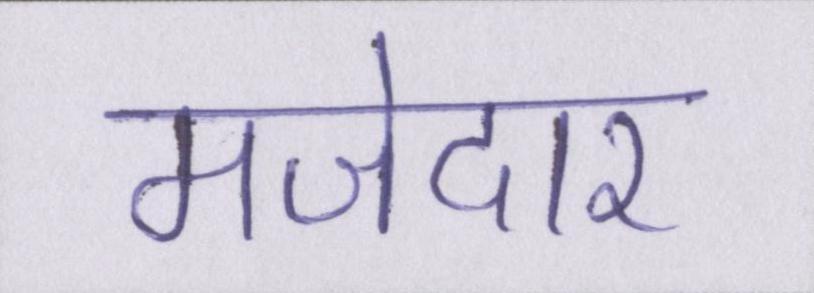 मजेदार